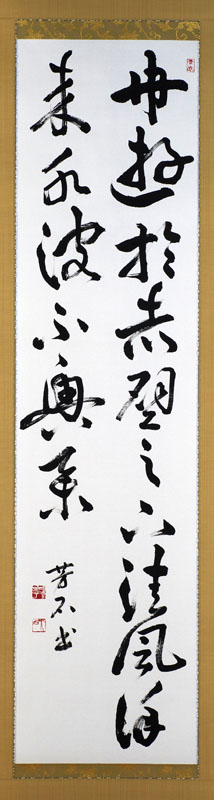 舟遊於赤壁之下清風徐
来水波不興
芳石書